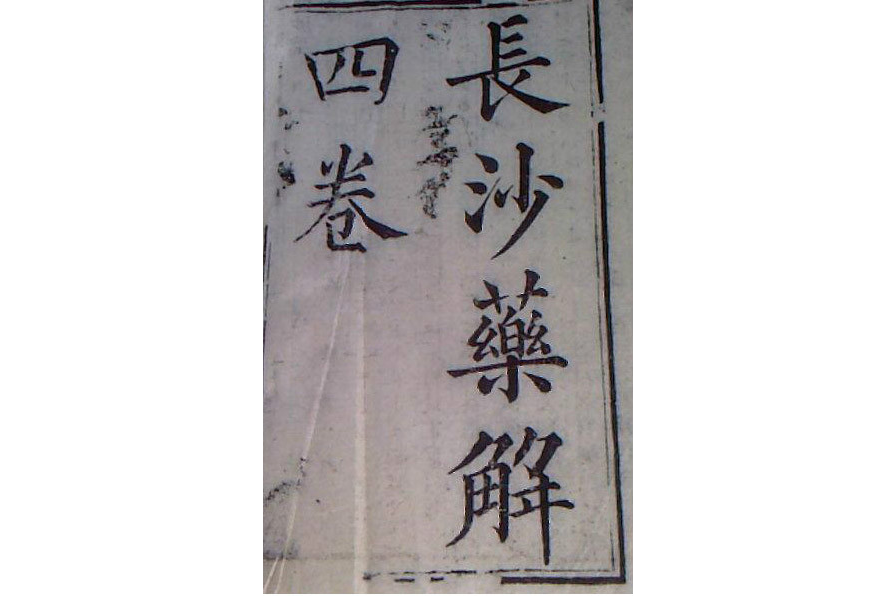 長沙藥解
四卷